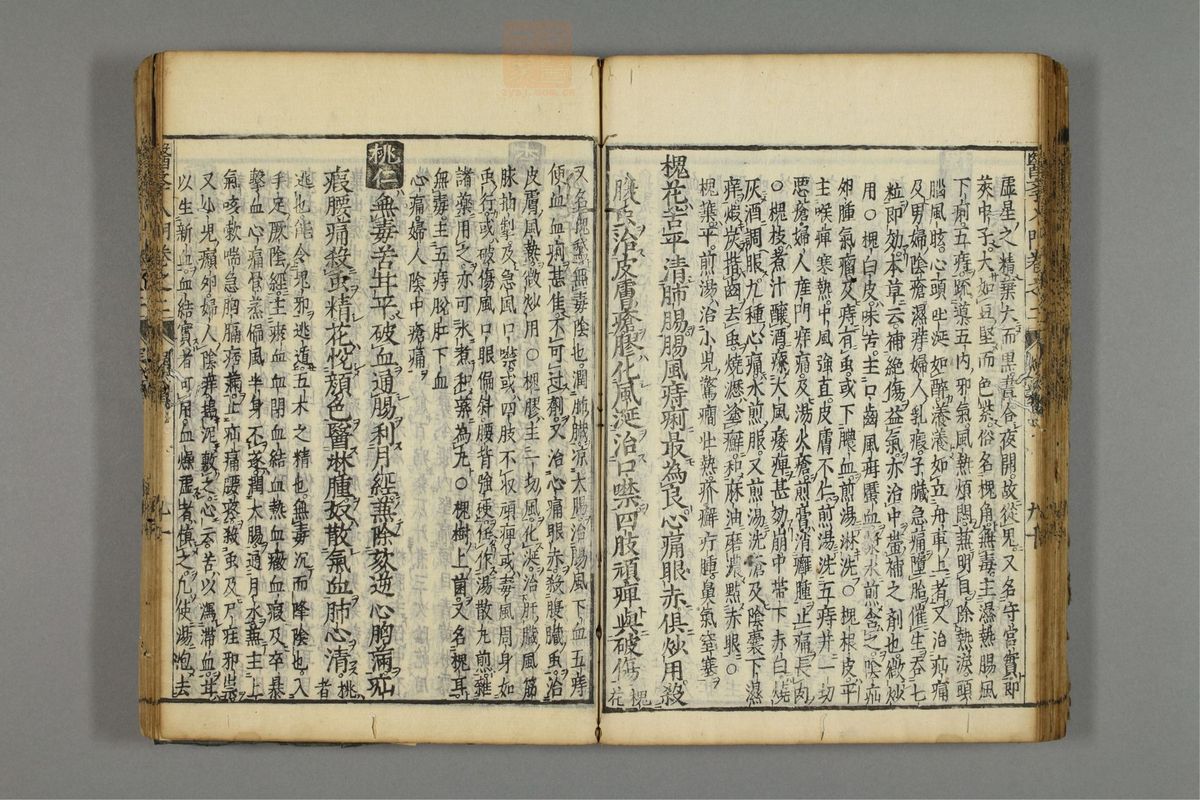 虛星之精葉大而黑晝合夜開故從鬼又名守宮實即
莢中子大如豆堅而色紫俗名槐角無毒主濕熱腸風
下痢五痔疏導五內邪氣風熱煩悶兼明目除熱淚頭
腦風眩心頭吐涎如醉瀁瀁如立舟車上者又治疝痛
及男婦陰瘡濕痒婦人乳瘕子臟急痛墮胎催生吞七
粒即効本草云補絕傷益氣亦治中虛補之劑也微炒
用○槐白皮味苦主口齒風疳䘌血漿水煎含之陰疝
卵腫氣瘤又痔有虫或下膿血煎湯淋洗○槐根皮平
主喉痺寒熱中風強直皮膚不仁煎湯洗五痔并一切
惡瘡婦人產門痒痛及湯火瘡煎膏消癰腫止痛長肉
○槐枝煮汁釀酒療大風痿痺甚効崩中帶下赤白燒
灰酒調服九種心痛水煎服又煎湯洗瘡及陰囊下濕
痒煅炭揩齒去虫燒瀝塗癬和麻油磨濃點赤眼○
槐葉平煎湯治小兒驚癇壯熱疥癬疔腫鼻氣窒塞
槐花苦平清肺腸腸風痔痢最為良心痛眼赤俱炒用殺
臟虫治皮膚瘡膠化風涎治口噤四肢頑痺與破傷槐花
又名槐鵝無毒陰也潤肺臟凉大腸治腸風下血五痔
便血血痢甚佳不可过劑又治心痛眼赤殺腹臟虫治
皮膚風熱微炒用○槐膠主一切風化痰治肝臟風筋
脉抽掣及急風口噤或四肢不収頑痺或毒風周身如
虫行或破傷風口眼偏斜腰背強硬任作湯散丸煎雜
諸藥用之亦可水煮和藥為丸○槐樹上菌又名槐耳
無毒主五痔脫肛下血
心痛婦人陰中瘡痛
桃仁無毒苦甘平破血通腸利月經兼除咳逆心胸痛疝
瘕腰痛殺虫精花悅顏色醫淋腫奴散氣血肺心清桃者
逃也能令鬼邪逃遁五木之精也無毒沉而降陰也入
手足厥陰經主瘀血血閉血結血熱血癥血瘕及卒暴
擊血心痛骨蒸偏風半身不遂潤大腸通月水兼主上
氣咳嗽喘急胸膈痞滿止疝痛腰疼殺虫及尸疰邪祟
又小兒㿗卵婦人陰痒搗泥敷之心云苦以瀉滯血甘
以生新血血結實者可用血燥虛者慎之凡使湯泡去